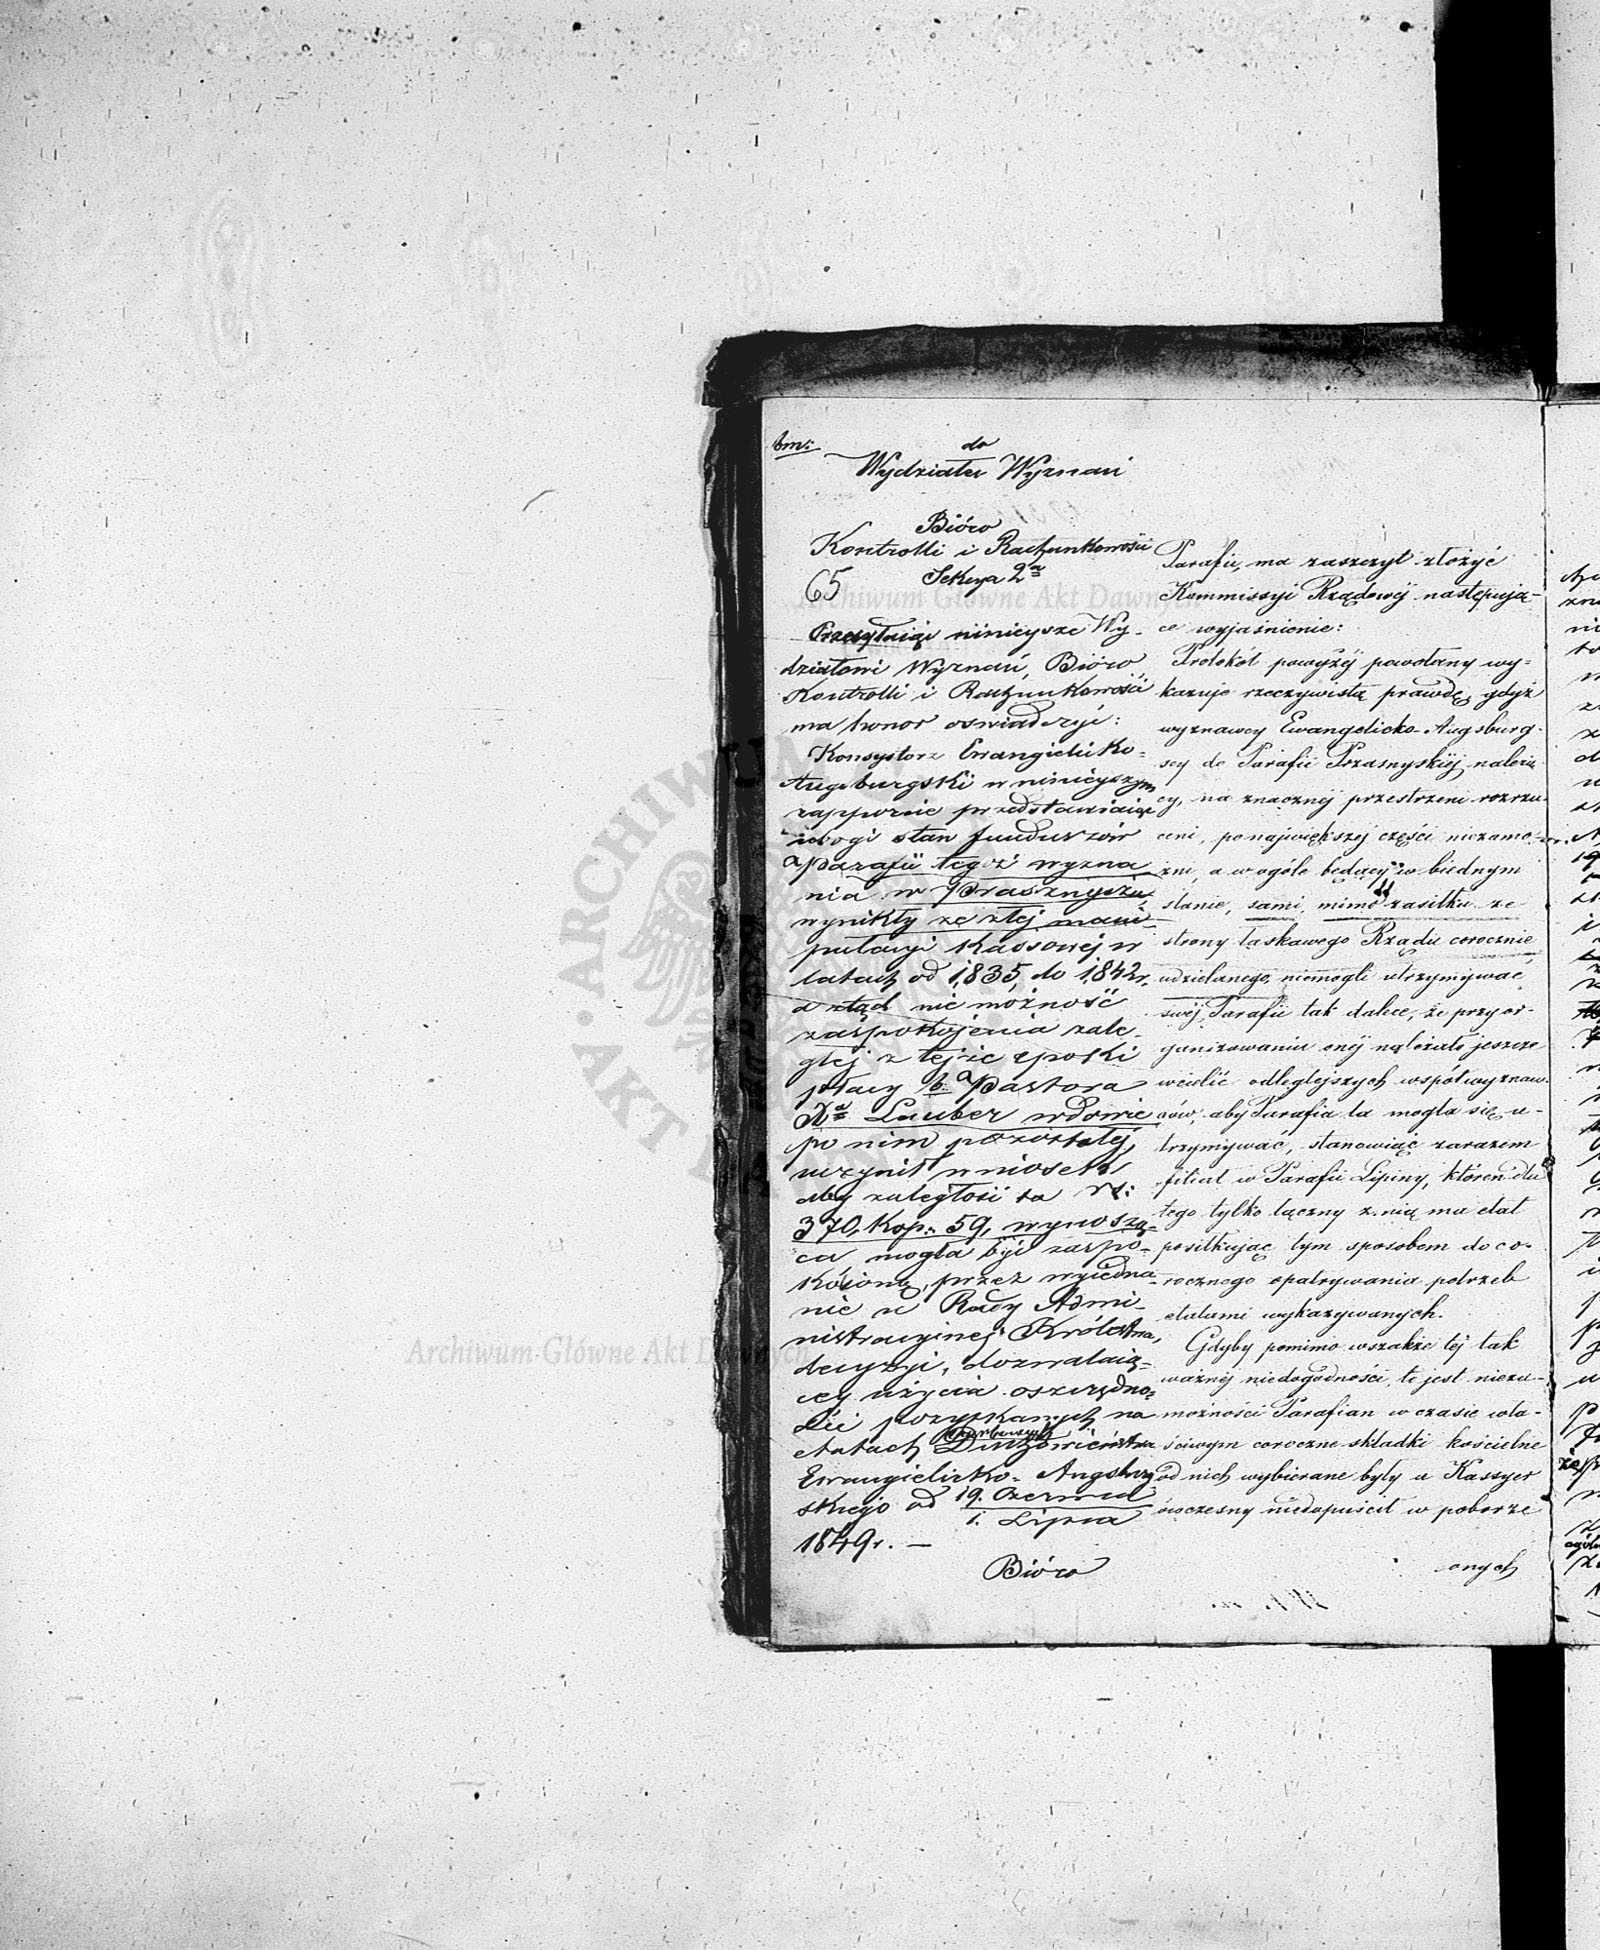 do
Wydziału Wyznań
Bióro
Kontrolli i Rachunkowości
Sekcya 2a
65
Przesyłaiąc niniejsze Wy-
działowi Wyznań, Bióro
Kontrolli i Rachunkowości
ma honor oświadczyć:
Konsystorz Ewangielicko-
Augsburgski w niniejszym
rapporcie przedstawiaiąc
ubogi stan funduszów
Parafii tegoż wyzna
nia w Prasznyszu,
wynikły ze złej mani-
pulacyi Kassowej w
latach od 1835, do 1842 r.
a ztąd nie możność
zaspokojenia zale-
głej z tej-że epoki
płacy b. Pastora
Lauber wdowie
po nim pozostałej,
uczynił wniosek
aby zaległość ta rs:
370, kop: 59, wynoszą-
ca mogła być zaspo-
kóioną, przez wyiedna-
nie u Rady Admi-
nistracyinej Królestwa,
decyzyi, dozwalaią-
cej użycia oszczędno-
ści pozyskanych na
etatach Duchowieństwa
Ewangielicko-Augsburg
skiego od 19. Czerwca
1. Lipca
1849 r. —
Bióro
Parafii, ma zaszczyt złożyć
Kommissyi Rządowéj następują-
ce wyjaśnienie:
Protokół powyżéj powołany wy-
kazuje rzeczywistą prawdę, gdyż
wyznawcy Ewangelicko-Augsburg-
scy do Parafii Przasnyskiéj należą-
cy, na znacznéj przestrzeni rozrzu-
ceni, po największej części niezamo-
żni, a w ogóle będący w biednym
stanie, sami, mimo zasiłku ze
strony łaskawego Rządu corocznie
udzielanego, niemogli utrzymywać
swéj Parafii tak dalece, że przy or-
ganizowaniu onéj należało jeszcze
wcielić odleglejszych współwyznaw-
ców, aby Parafia ta mogła się u-
trzymywać, stanowiąc zarazem
filiał w Parafii Lipiny, któren dla
tego tylko łączny z nią ma etat
posiłkując tym sposobem do co-
rocznego opatrywania potrzeb
etatami wykazywanych.
Gdyby pomimo wszakże téj tak
ważnéj niedogodności, to jest nieza-
możności Parafian w czasie wła-
ściwym coroczne składki kościelne
od nich wybierane były a Kassyer
ówczesny niedopuścił w poborze
onych